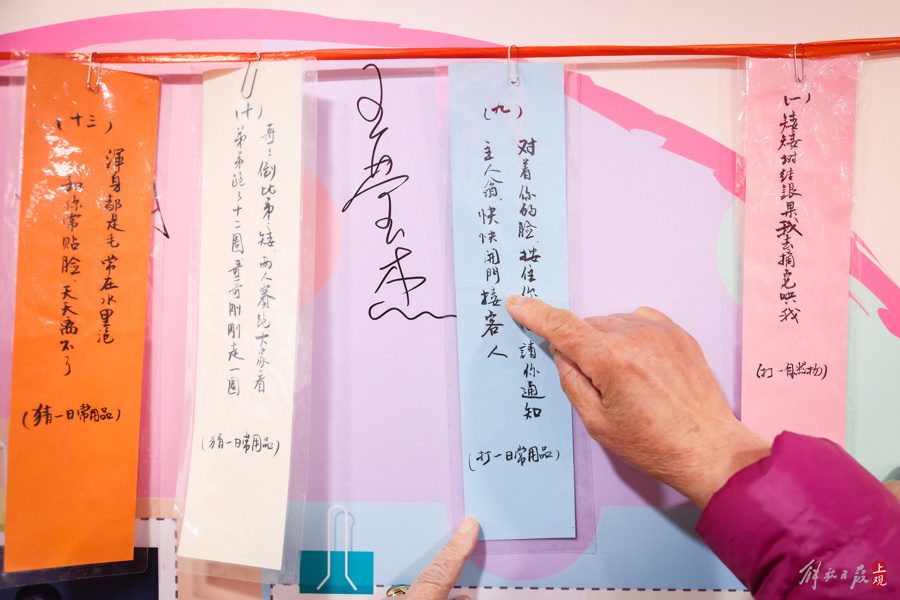 (一)
矮矮树结銀果我去摘它哄我
(打一自然物)
(九)
对着你的脸、按住你 請你通知
主人翁、快快開門接客人
(打一日常用品)
(十)
哥:倒比弟:矮 两人賽跑大家看
弟弟跑了十二圈 哥哥刚刚走一圈
(猜一日常用品)
(十三)
渾身都是毛 常在水里泡
和你常贴脸、天天离不了
(猜一日常用品)
解放日报 上观